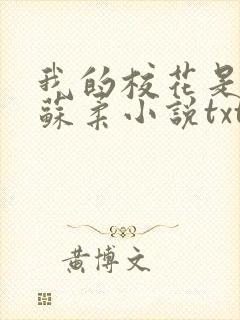 我的校花是
蘇柔小説txt
黄博文